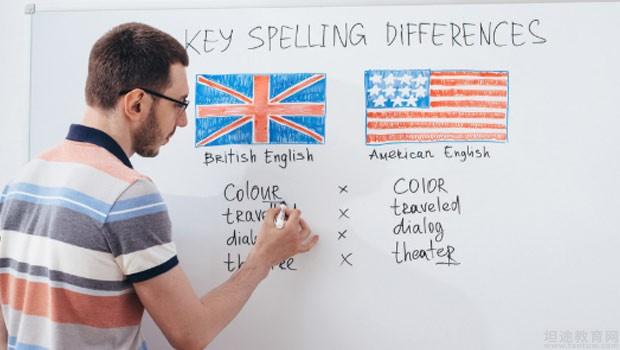 KEY SPELLING DIFFERENCES
British English
American English
Colour x COLOR
x traveled
x dialog
x theater
坦途教育网
www.tantuw.com